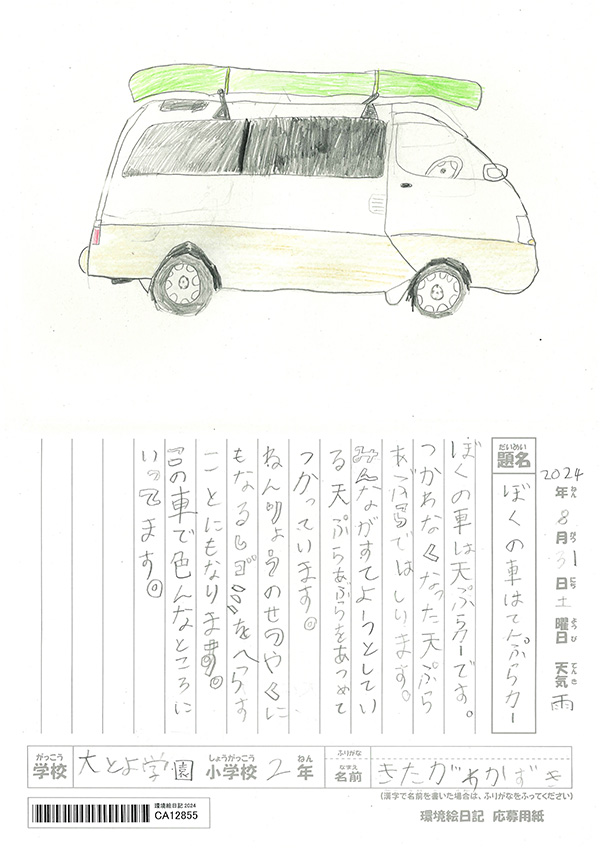 2024年ねん8月がつ31日にち土曜日ようび 天気てんき雨
題名だいめい ぼくの車はてんぷらカー
ぼくの車は天ぷらカーです。
つかわなくなった天ぷら
あぶらではしります。
みんながすてようとしてい
る天ぷらあぶらをあつめて
つかっています。
ねんりょうのせつやくに
もなるしゴミをへらす
ことにもなります。
この車で色んなところに
いってます。
がっこう
学校 大とよ学園
しょうがっこう ねん
小学校 2年
ふりがな
なまえ
名前 きたがわかずき
(漢字で名前を書いた場合は、ふりがなをふってください)
環境絵日記2024
CA12855
環境絵日記 応募用紙